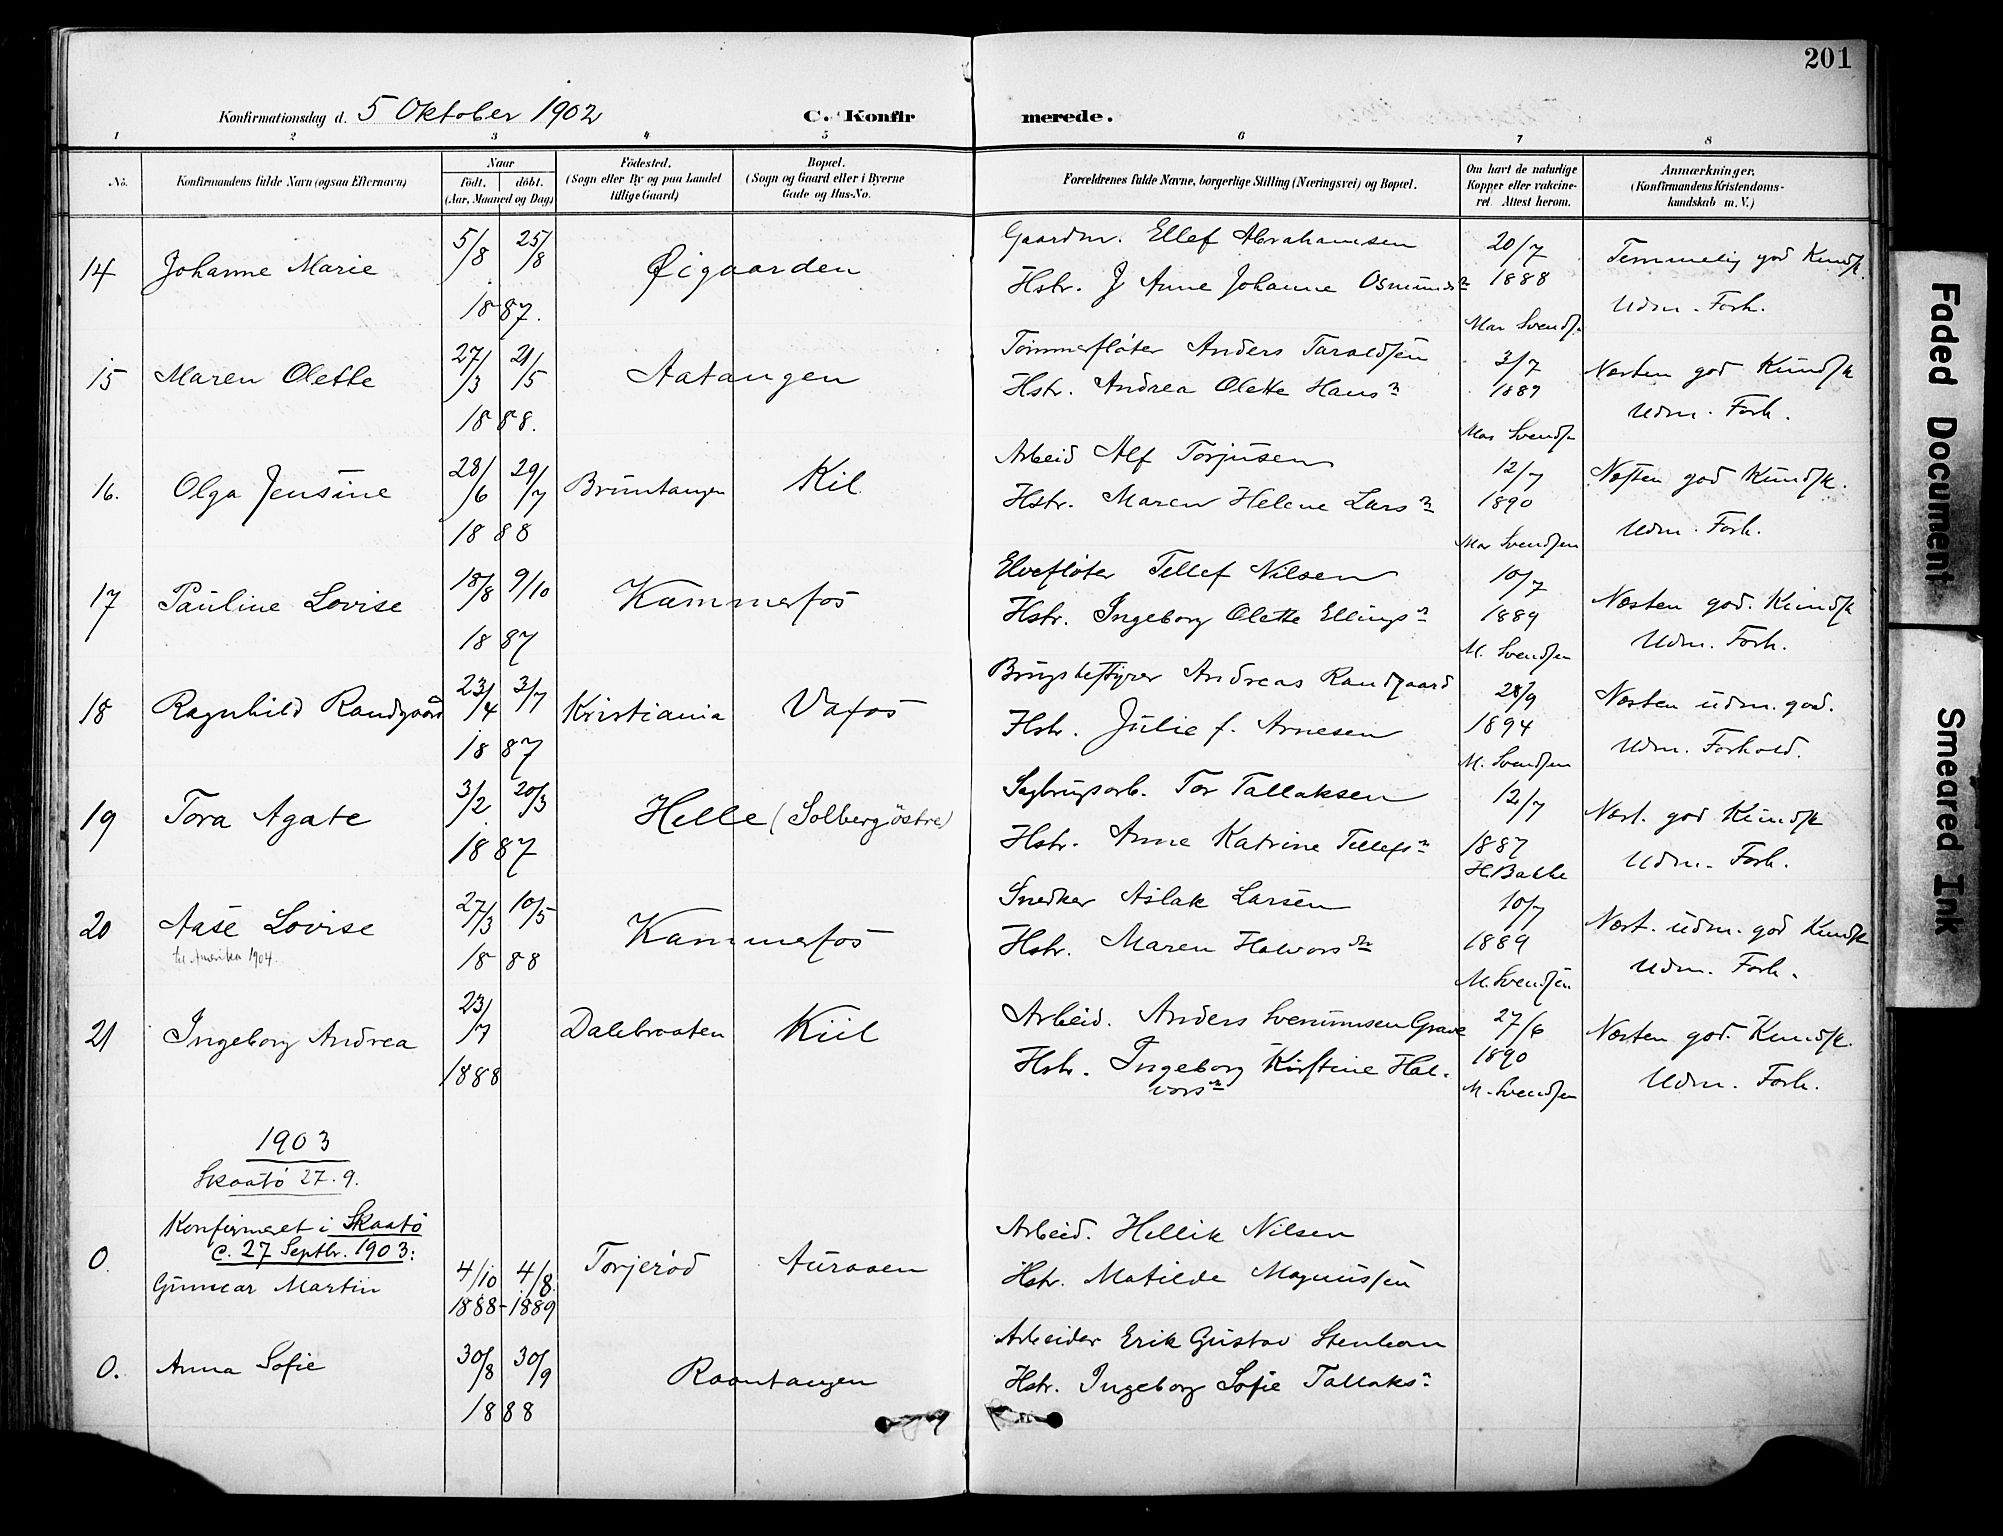 201
Konfirmationsdag d. 5 Oktober 1902
C. Konfirmerede.
1 2 3 4 5 6 7 8
No.
Konfirmandens fulde Navn (ogsaa Efternavn)
Naar
født. døbt.
(Aar, Maaned og Dag)
Fødested.
(Sogn eller By og paa Landet
tillige Gaard)
Bopæl.
(Sogn og Gaard eller i Byerne
Gade og Hus-No.
Forældrenes fulde Navne, borgerlige Stilling (Næringsvei) og Bopæl.
Om havt de naturlige
Kopper eller vakcine-
ret. Attest herom.
Anmærkninger,
(Konfirmandens Kristendoms-
kundskab m. V.)
14 Johanne Marie 5/8 25/8 1887. Øigaarden
Gaardm. Ellef Abrahamsen
Hstr. J Anne Johanne Osmunds n
20/7 1888 Mar Svends.
Temmelig god Kundsk.
Udm. Forh.
15 Maren Olette 27/3 21/5 1888. Aatangen
Tømmerfløter Anders Taraldsen
Hstr. Andrea Olette Hans n
3/7 1889 Mar Svends
Næsten god Kundsk
Udm. Forh.
16. Olga Jensine 28/6 29/7 1888 Bruntangen Kil
Arbeid Alf Torjusen
Hstr. Maren Helene Lars n
12/7 1890 Mar Svendsen
Næsten god Kundsk.
Udm. Forh.
17 Pauline Lovise 18/8 9/10 1887 Kammerfos
Elvefløter Tellef Nilsen
Hstr. Ingeborg Olette Ellings n
10/7 1889 M. Svendsen
Næsten god. Kundsk
Udm. Forh.
18 Ragnhild Randgaard 23/4 3/7 1887 Kristiania Vafos
Brugsbestyrer Andreas Randgaard
Hstr. Julie f. Arnesen
28/9 1894 M. Svendsen
Næsten udm. god.
Udm. Forhold.
19 Tora Agate 3/2 20/3 1887 Helle (Solberg östre)
Sagbrugsarb. Tor Tallaksen
Hstr. Anne Katrine Tellefs n
12/7 1887 H. Bakke
Næst. god Kundsk
Udm. Forh.
20 Aase Lovise 27/3 10/5 1888 Kammerfos
til Amerika 1904.
Snedker Aslak Larsen
Hstr. Maren Halvors dtr
10/7 1889 M. Svendsen
Næst. udm. god Kundsk
Udm. Forh.
21 Ingeborg Andrea 23/7 1888 Dalebraaten Kiil
Arbeid. Anders Svenumsen Grave
Hstr. Ingeborg Kirstine Hal-
vors n
27/6 1890 M. Svendsen
Næsten god. Kundsk.
Udm. Forh.
1903
Skaatö 27.9.
Konfirmeret i Skaatö
d. 27 Septbr. 1903:
0. Gunnar Martin 4/10 1888 - 4/8 1889 Torjerød Auraaen
Arbeid. Hellik Nilsen
Hstr. Matilde Magnussen
0. Anna Sofie 30/8 30/9 1888 Raantangen
Arbeider Erik Gustav Stenbom
Hstr. Ingeborg Sofie Tallaks n
Faded Document
Smeared Ink